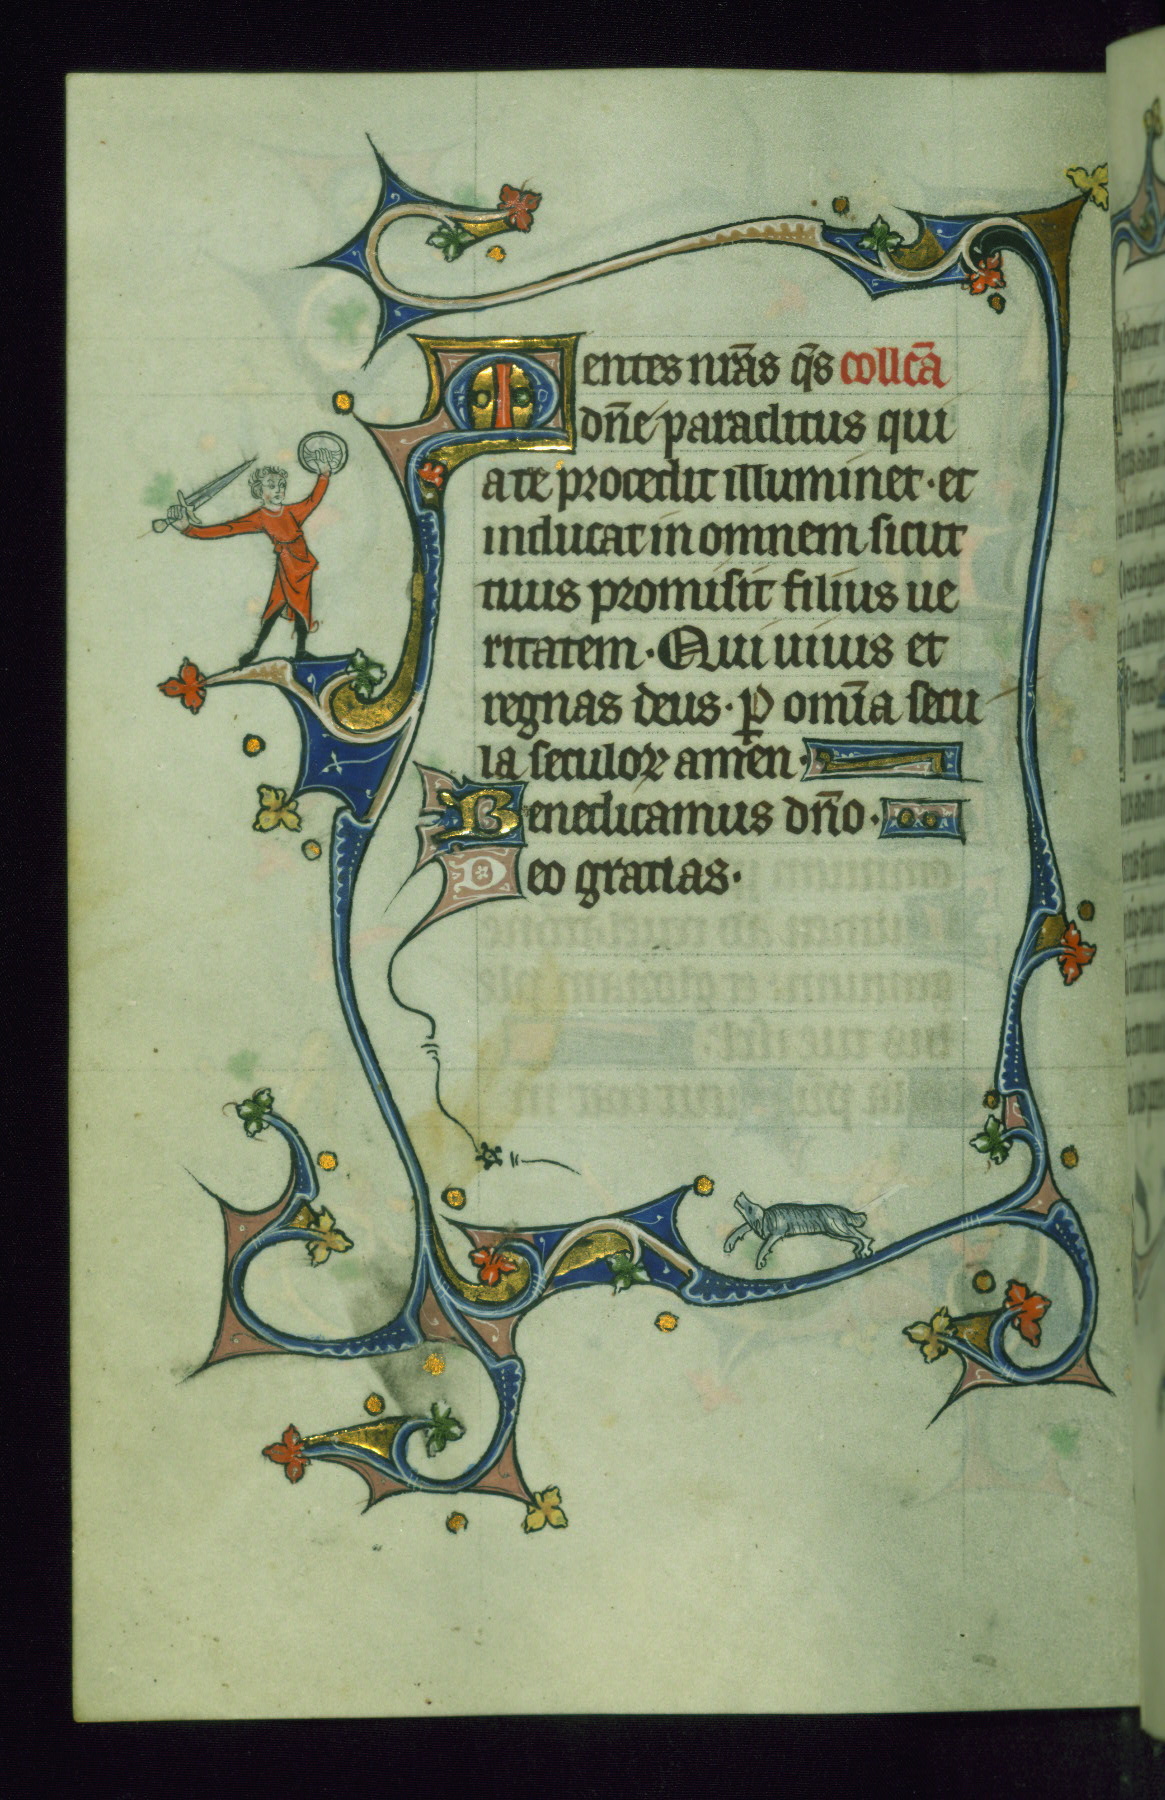 Mentes nr̄as q̄s collc̄a
dn̄e paraclitus qui
a te procedit illuminet · et
inducat in omnem sicut
tuus promisit filius ue
ritatem · Qui uiuis et
regnas deus · ꝑ om̄ia secu
la seculoꝝ amen ·
Benedicamus dn̄o ·
Deo gratias ·